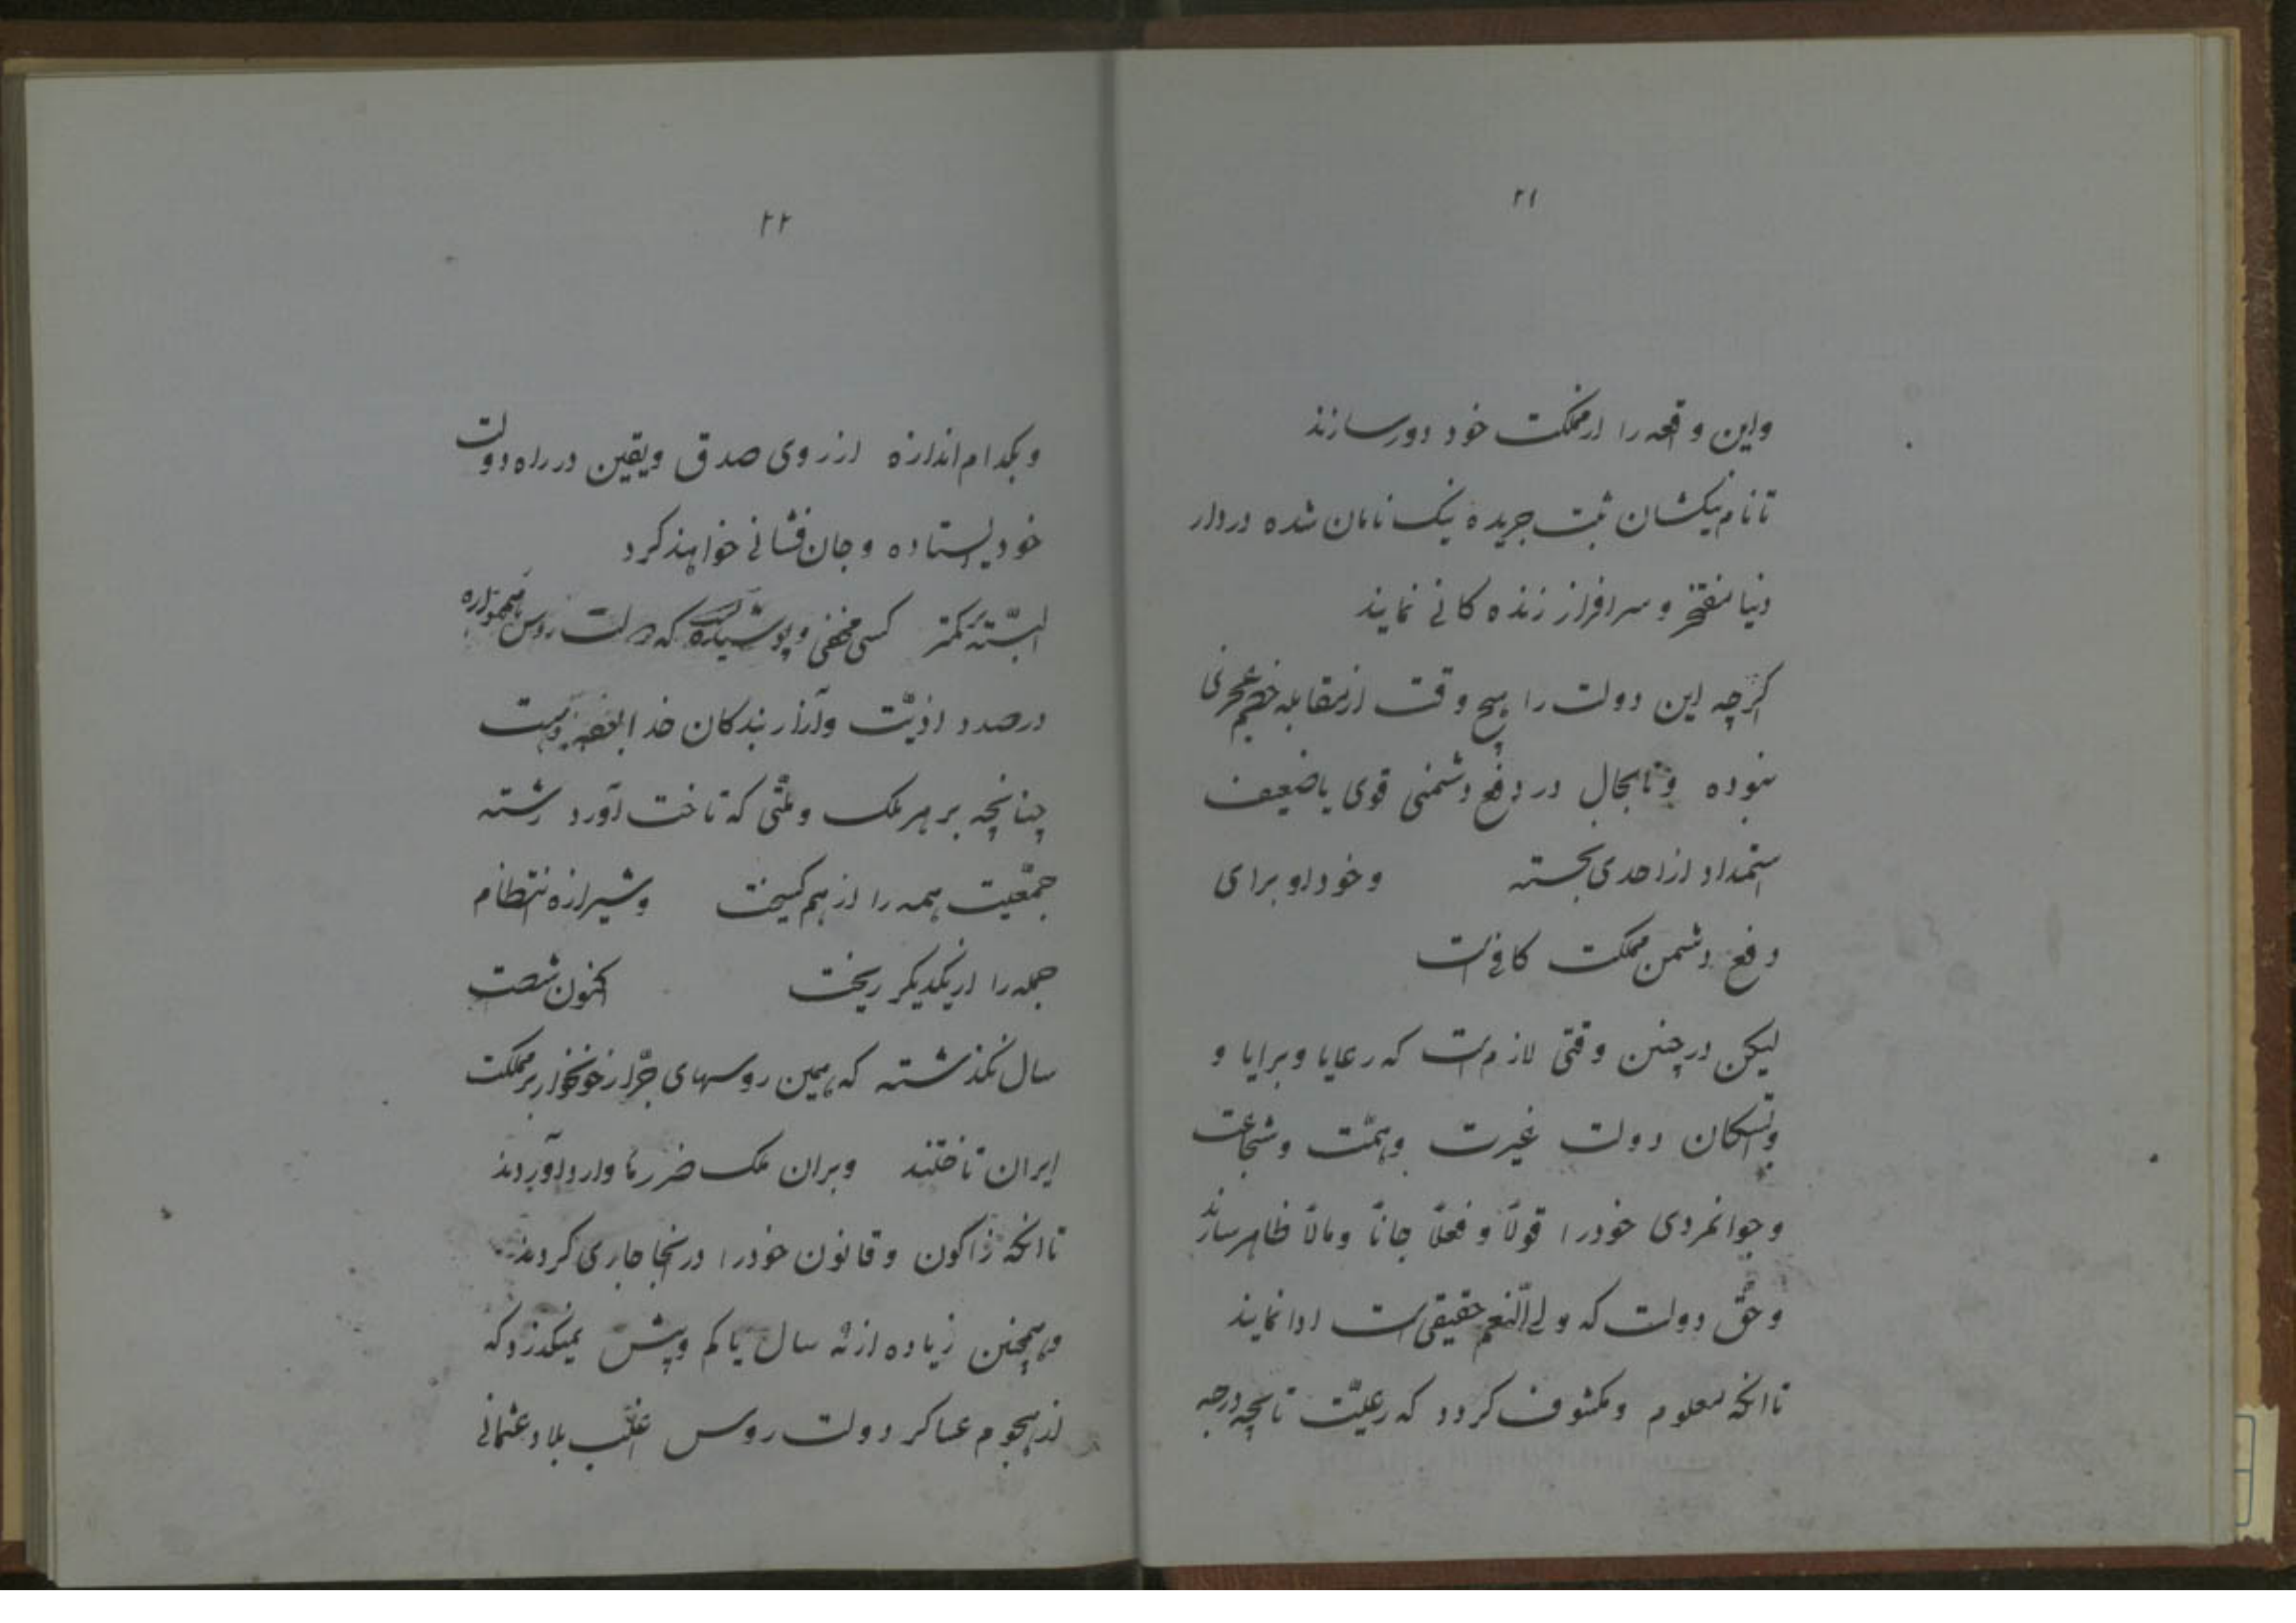 ۲۱
واین وقعه را از مملکت خود دور سازند
تا نام نیکشان ثبت جریده نیک نامان شده در دار
دنیا مفتخر و سرافراز زنده کانی نمایند
کرچه این دولت را هیچ وقت از مقابله خصم عجزی
نبوده و تابحال در دفع دشمنی قوی یا ضعیف
استمداد از احدی نجسته وخود او برای
دفع دشمن مملکت کافی است
لیکن در چنین وقتی لازم است که رعایا وبرایا و
دولت غیرت وهمّت وشجاعت
وجوانمردی خودرا قولاً وفعلاً جاناً ومالاً ظاهر سازند
وحقّ دولت که ولی النّعم حقیقی است ادا نمایند
تا انکه معلوم ومکشوف کردد که رعیّت تا بچه درجه
۲۲
وبکدام اندازه از روی صدق ویقین در راه دولت
خود ایستاده وجان فشانی خواهند کرد
البتّه کمتر کسی مخفی وپوشیده که دولت روس همواره
درصدد اذیّت وآزار بندکان خدا
چنانچه بر هر ملک وملّتی که تاخت آورد رشته
جمعّیت همه را از هم کسیخت وشیرازه انتظام
جمله را از یکدیکر ریخت کنون شصت
سال نکذشته که همین روسهای جرّار خونخوار بر مملکت
ایران تاختند وبران ملک ضررها وارد آوردند
تا انکه زاکون وقانون خودرا در انجا جاری کردند
وهمچنین زیاده از نه سال یا کم وپیش نمیکذرد که
از هجوم عساکر دولت روس اغلب بلاد عثمانی